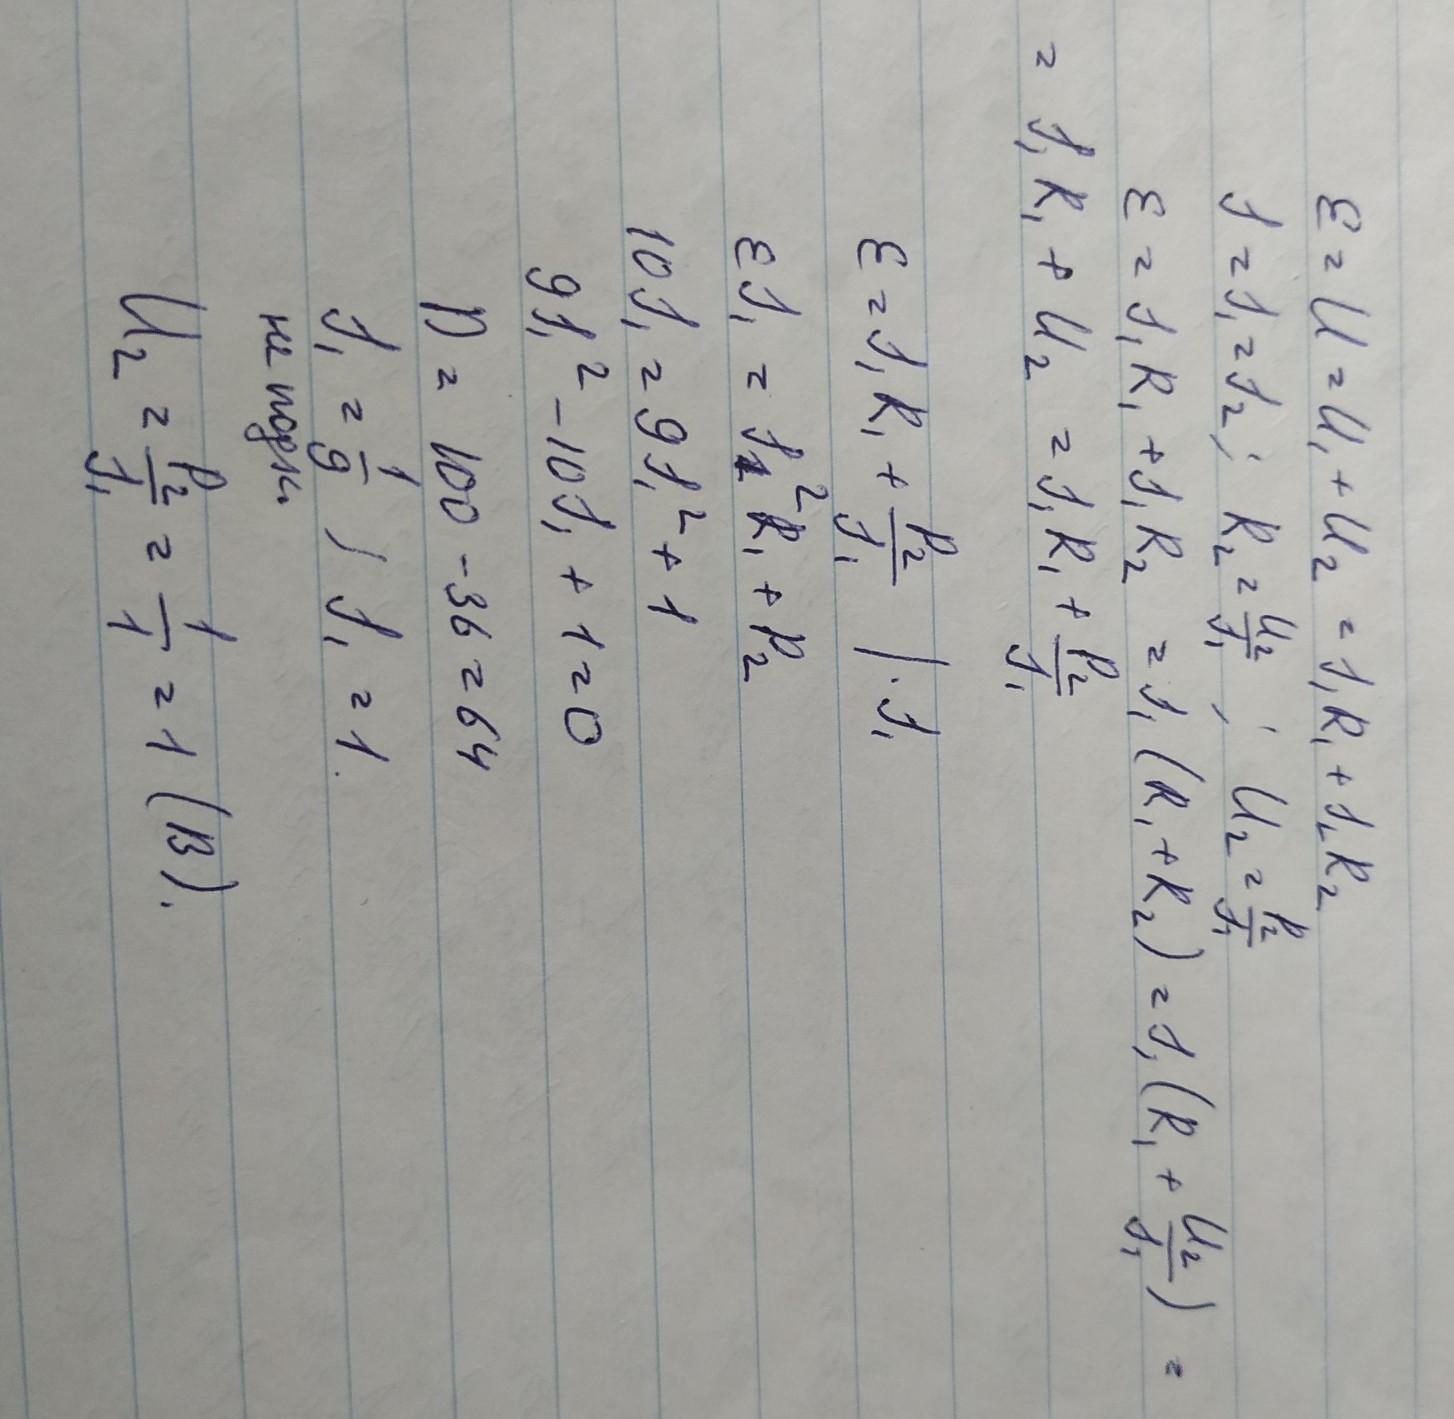 ε = U = U₁ + U₂ = I₁R₁ + I₂R₂
I = I₁ = I₂; R₂ = U₂/I₁; U₂ = P₂/I₁
ε = I₁R₁ + I₁R₂ = I₁(R₁ + R₂) = I₁(R₁ + U₂/I₁) =
= I₁R₁ + U₂ = I₁R₁ + P₂/I₁
ε = I₁R₁ + P₂/I₁ | · I₁
εI₁ = I₁²R₁ + P₂
10I₁ = 9I₁² + 1
9I₁² - 10I₁ + 1 = 0
D = 100 - 36 = 64
I₁ = 1/9 / I₁ = 1.
не подх.
U₂ = P₂/I₁ = 1/1 = 1 (В).